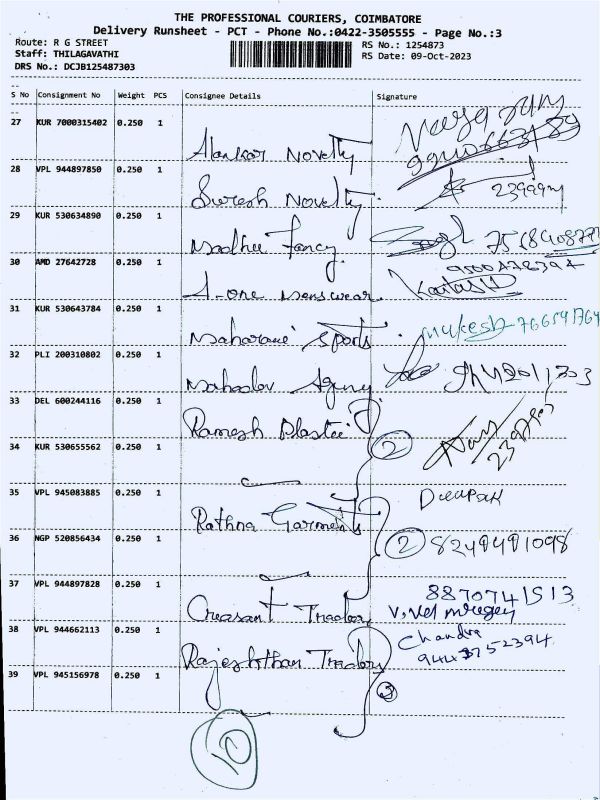 THE PROFESSIONAL COURIERS, COIMBATORE
Delivery Runsheet - PCT - Phone No.:0422-3505555 - Page No.:3
Route: R G STREET
RS No.: 1254873
Staff: THILAGAVATHI
RS Date: 09-Oct-2023
DRS No.: DCJB125487303
S No Consignment No Weight PCS Consignee Details Signature
27 KUR 7000315402 0.250 1
Alankar Novelty
28 VPL 944897850 0.250 1
Suresh Novelty
29 KUR 530634890 0.250 1
Madhu Fancy
30 AMD 27642728 0.250 1
A-one menswear
31 KUR 530643784 0.250 1
Maharani Sports
Mukesh
32 PLI 200310802 0.250 1
Mahadev Agency
33 DEL 600244116 0.250 1
Ramesh Plastic
34 KUR 530655562 0.250 1
2
35 VPL 945083885 0.250 1
Deepak
Rathna Garments
36 NGP 520856434 0.250 1
2
37 VPL 944897828 0.250 1
8870741513
V. Vel murugan
38 VPL 944662113 0.250 1
Chandra
9443752394
Rajeshthan Traders
39 VPL 945156978 0.250 1
3
10